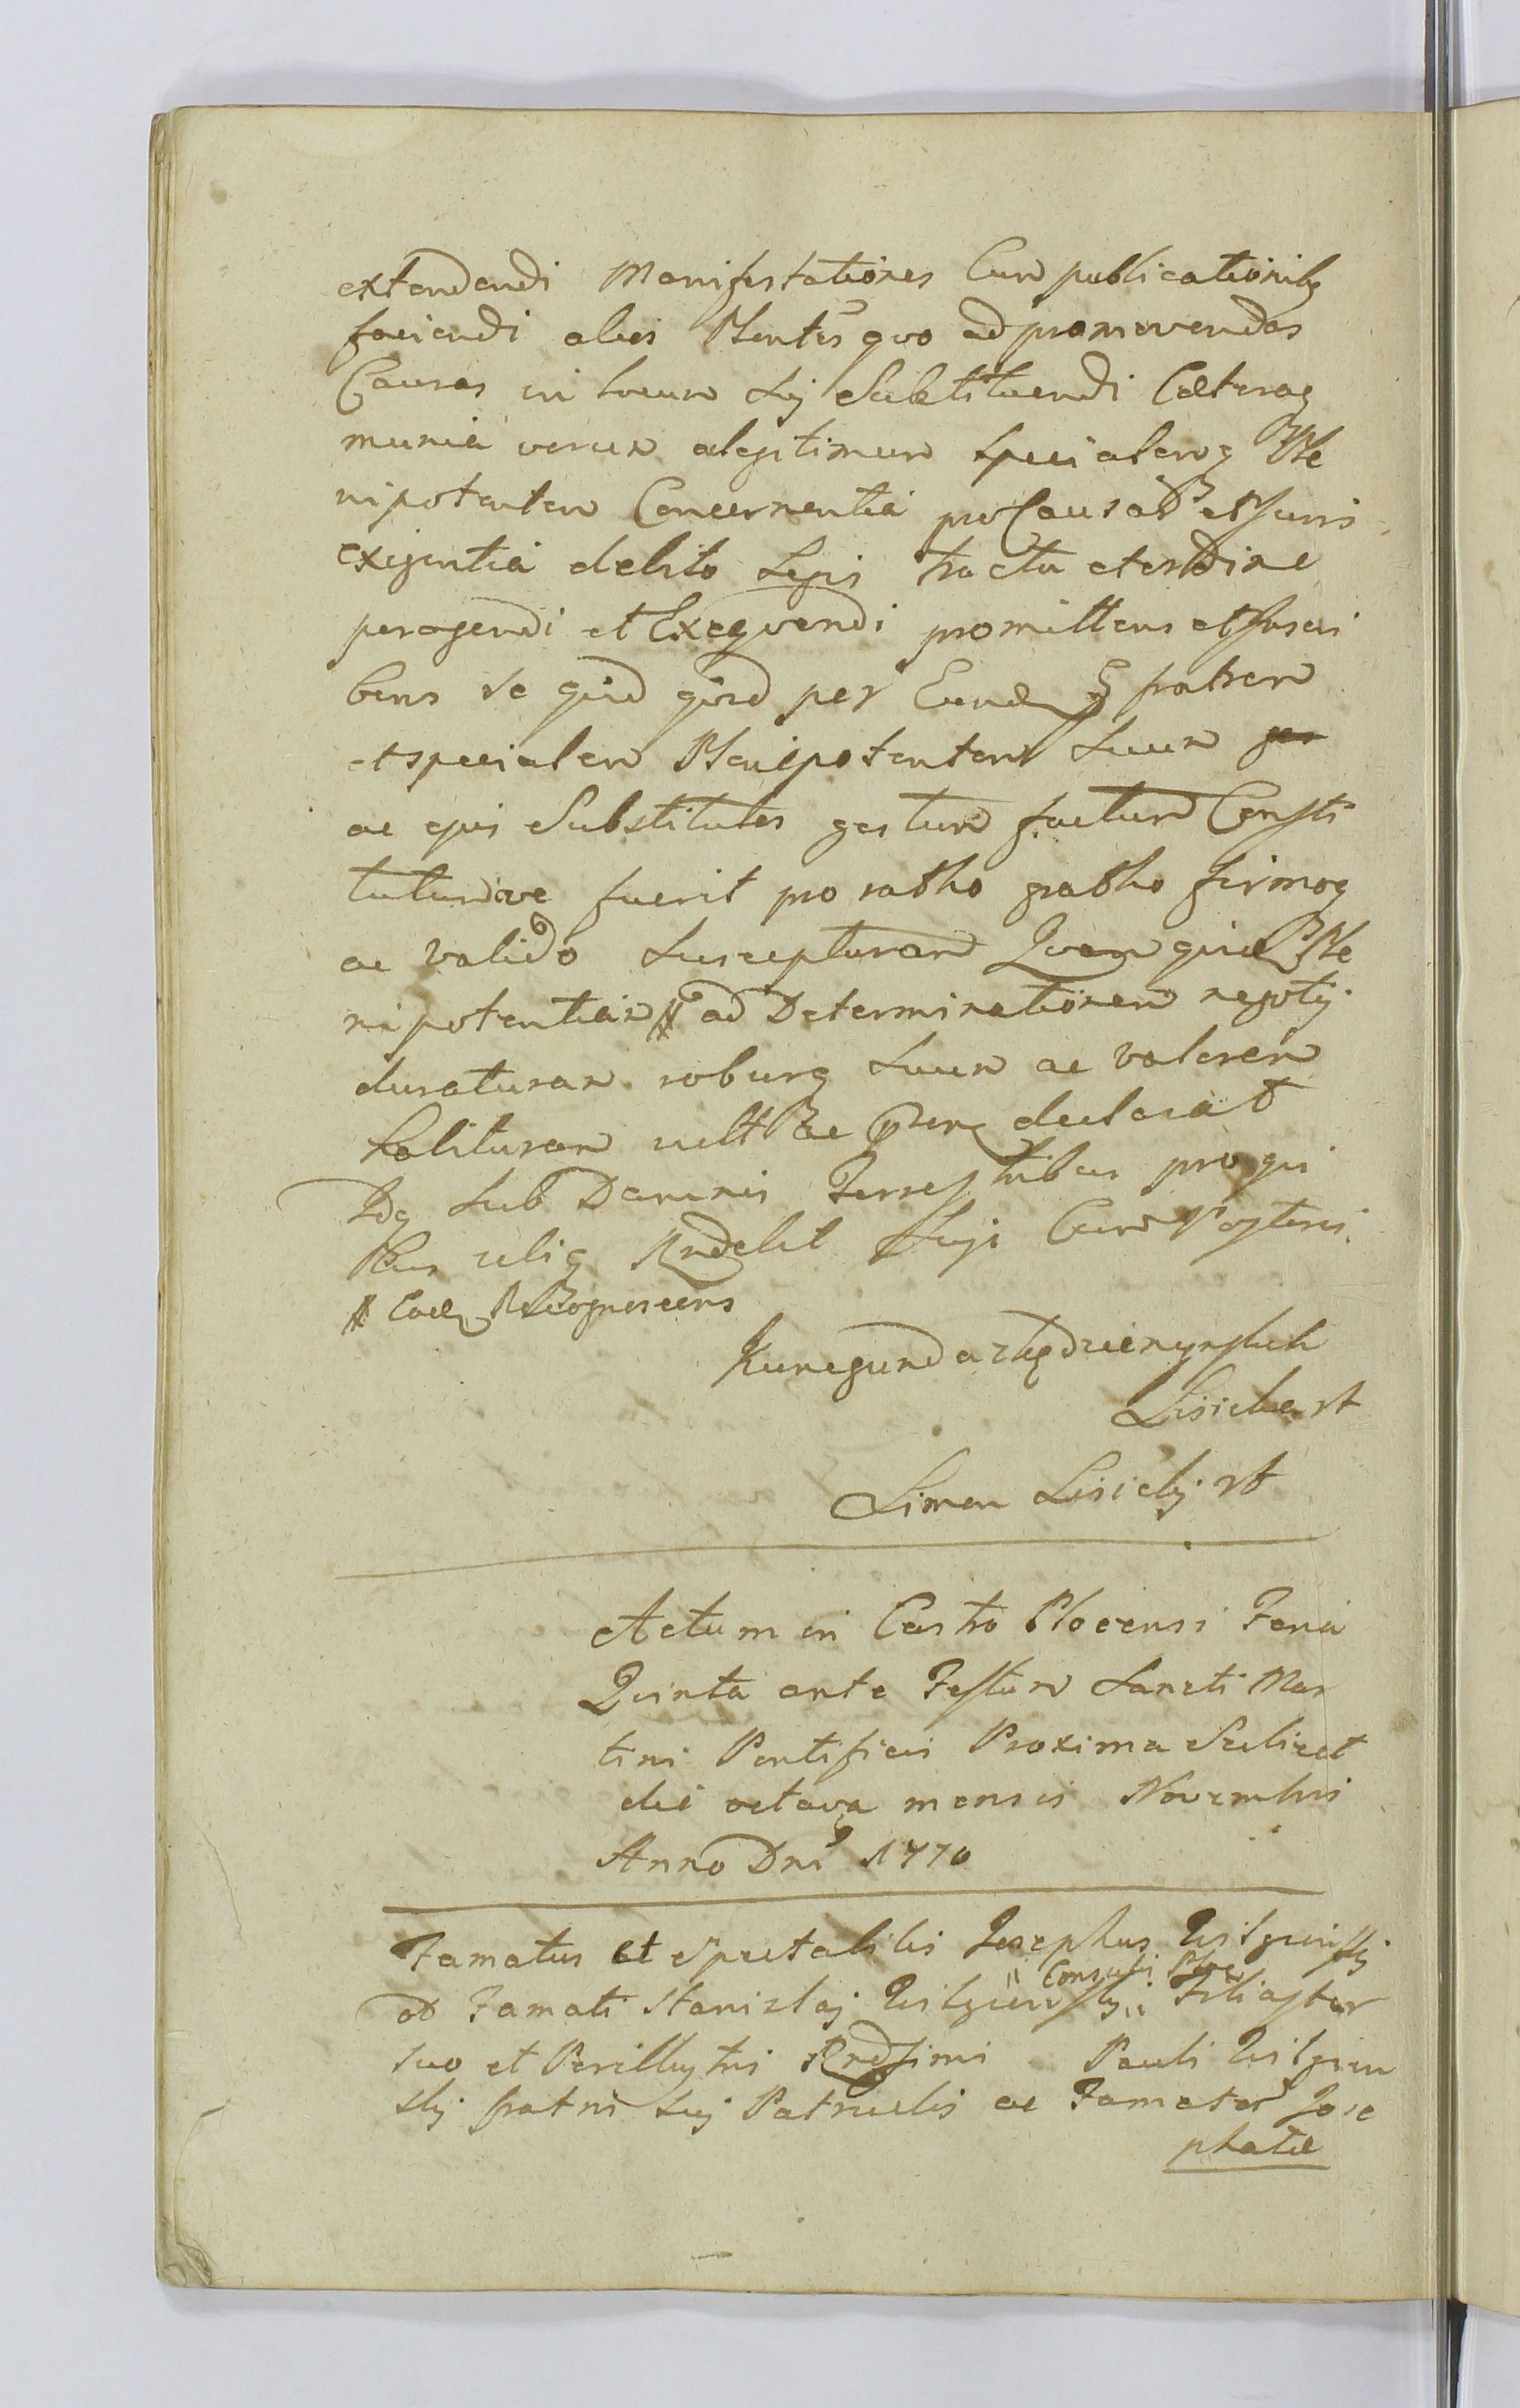 extendendi Manifestationes Cum publicationibq
faciendi alios Plentes quo ad promovendas
Causas in locum sui Substituendi Cæteraq
munia verum alegitimum Specialemq Ple
nipotentem Concernentia pro Causar et Juris
exigentia debito Legis tractu et ordine
peragendi et Exeqvendi promittens et Inscri
bens se qud qud per Eund fratrem
et specialem Plenipotentem Suum
ac ejus Substitutos gestum factum Consti
tutumve fuerit pro ratho gratho firmoq
ac valido Suscepturam Quam quid Ple
nipotentiam # ad Determinationem negotij
duraturam roburq Suum ac valorem
habituram vult ac declarat
Idq Sub Damnis Terrestribus pro qui
bus reliq Rndebit Suji Cum Posteris
# Coll Recognoscens
Kunegunda
Lisicka rt
Simon Lisicky rt
Actum in Castro Plocensi Feria
Quinta ante Festum Sancti Mar
tini Pontificis Proxima Scilicet
die octava mensis Novembris
Anno Dni 1770
Famatus et Spectabilis Josephus Wilgienski
ad Famati Stanislaj Wilgienskj " Consulis Ploc " Filiaster
suo et Perillustris Rndssimi Pauli Wilgien
skj fratris sui Patruelis ac Famatæ Jose
phatæ